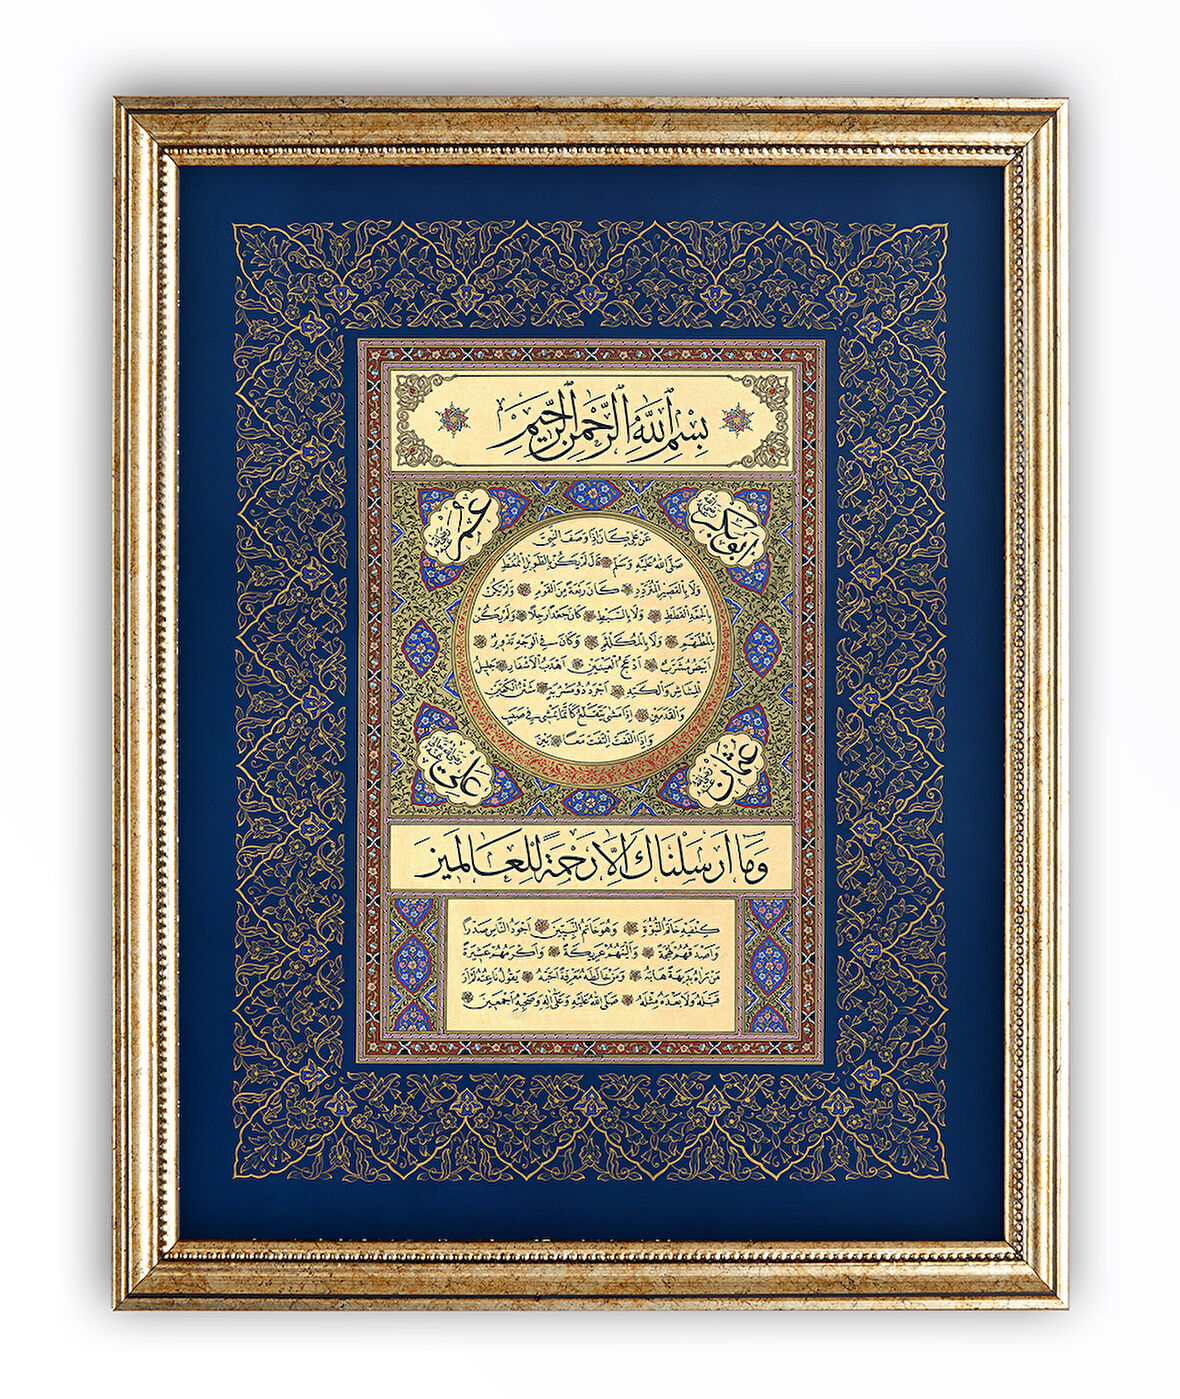 بِسْمِ اللّٰهِ الرَّحْمٰنِ الرَّحِيمِ
ابوبكر
رضى الله عنه
عمر
رضى الله عنه
عَنْ عَلِيٍّ كَانَ اِذَا وَصَفَ النَّبِيَّ
صَلَّى اللّٰهُ عَلَيْهِ وَسَلَّمَ قَالَ لَمْ يَكُنْ بِالطَّوِيلِ الْمُمَّغِطِ
وَلَا بِالْقَصِيرِ الْمُتَرَدِّدِ كَانَ رَبْعَةً مِنَ الْقَوْمِ وَلَمْ يَكُنْ
بِالْجَعْدِ الْقَطَطِ وَلَا بِالسَّبِطِ كَانَ جَعْدًا رَجِلًا وَلَمْ يَكُنْ
بِالْمُطَهَّمِ وَلَا بِالْمُكَلْثَمِ وَكَانَ فِي الْوَجْهِ تَدْوِيرٌ
اَبْيَضُ مُشْرَبٌ اَدْعَجُ الْعَيْنَيْنِ اَهْدَبُ الْاَشْفَارِ جَلِيلُ
الْمُشَاشِ وَالْكَتَدِ اَجْرَدُ ذُو مَسْرُبَةٍ شَثْنُ الْكَفَّيْنِ
وَالْقَدَمَيْنِ اِذَا مَشٰى يَتَقَلَّعُ كَاَنَّمَا يَمْشِى فِى صَبَبٍ
وَاِذَا الْتَفَتَ اِلْتَفَتَ مَعًا بَيْنَ
عثمان
رضى الله عنه
على
رضى الله عنه
وَمَا اَرْسَلْنَاكَ اِلَّا رَحْمَةً لِلْعَالَمِينَ
كِتْفَيْهِ خَاتَمُ النُّبُوَّةِ وَهُوَ خَاتَمُ النَّبِيِّينَ اَجْوَدُ النَّاسِ صَدْرًا
وَاَصْدَقُهُمْ لَهْجَةً وَاَلْيَنُهُمْ عَرِيكَةً وَاَكْرَمُهُمْ عَشِيرَةً
مَنْ رَاٰهُ بَدِيهَةً هَابَهُ وَمَنْ خَالَطَهُ مَعْرِفَةً اَحَبَّهُ يَقُولُ نَاعِتُهُ لَمْ اَرَ
قَبْلَهُ وَلَا بَعْدَهُ مِثْلَهُ صَلَّى اللّٰهُ عَلَيْهِ وَعَلٰى اٰلِهِ وَصَحْبِهِ اَجْمَعِينَ